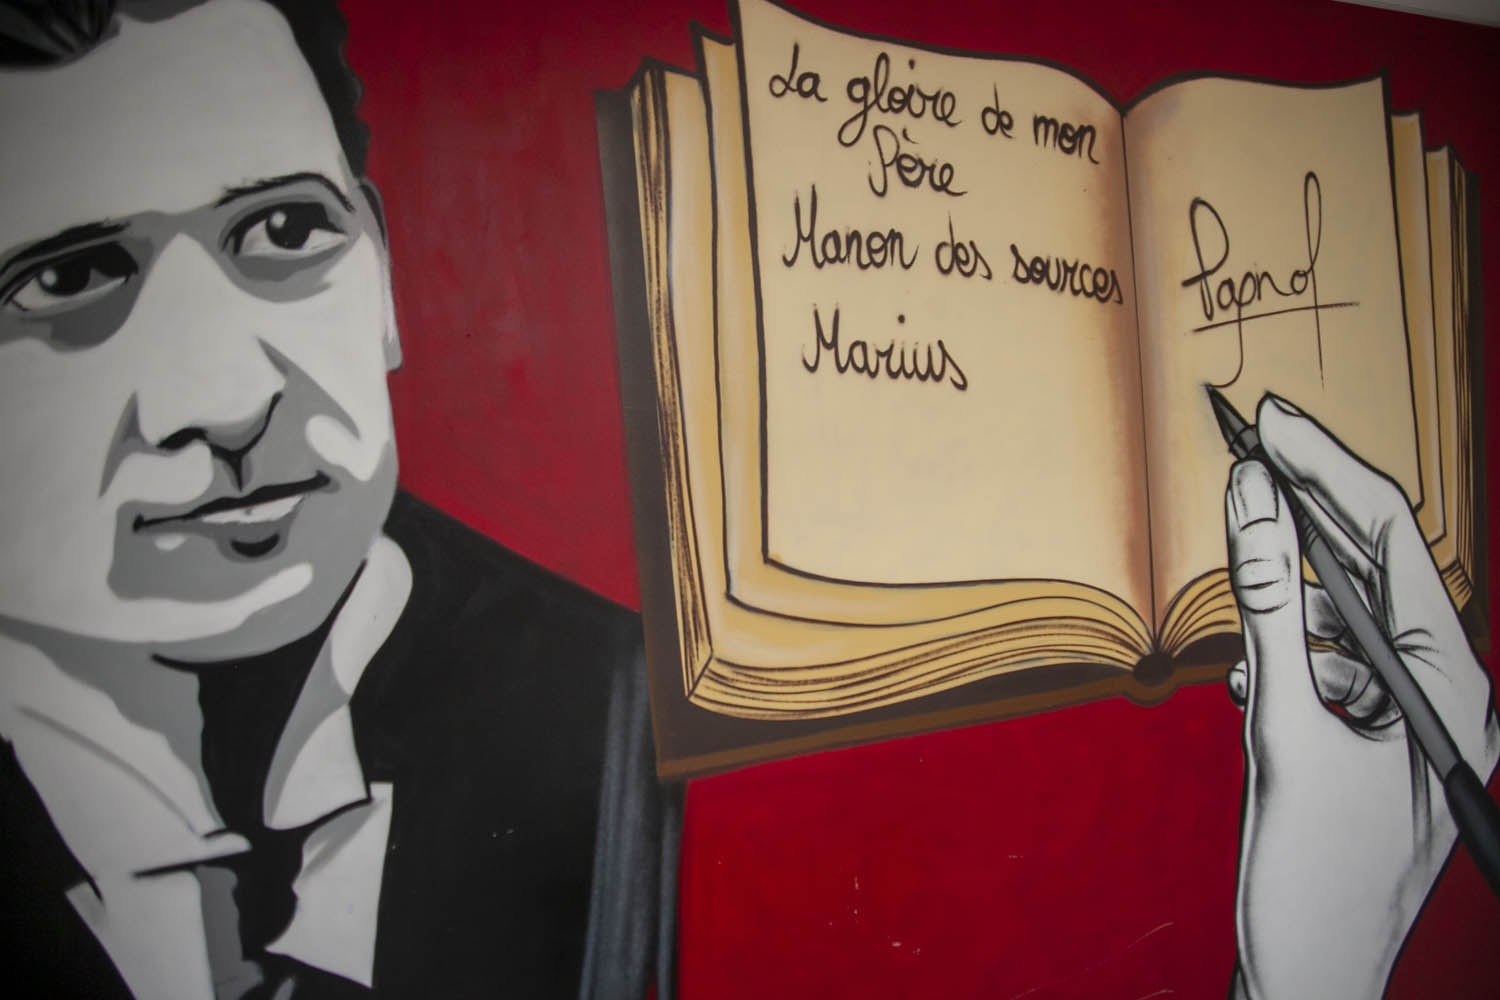 La gloire de mon
Père
Manon des sources
Marius
Pagnol